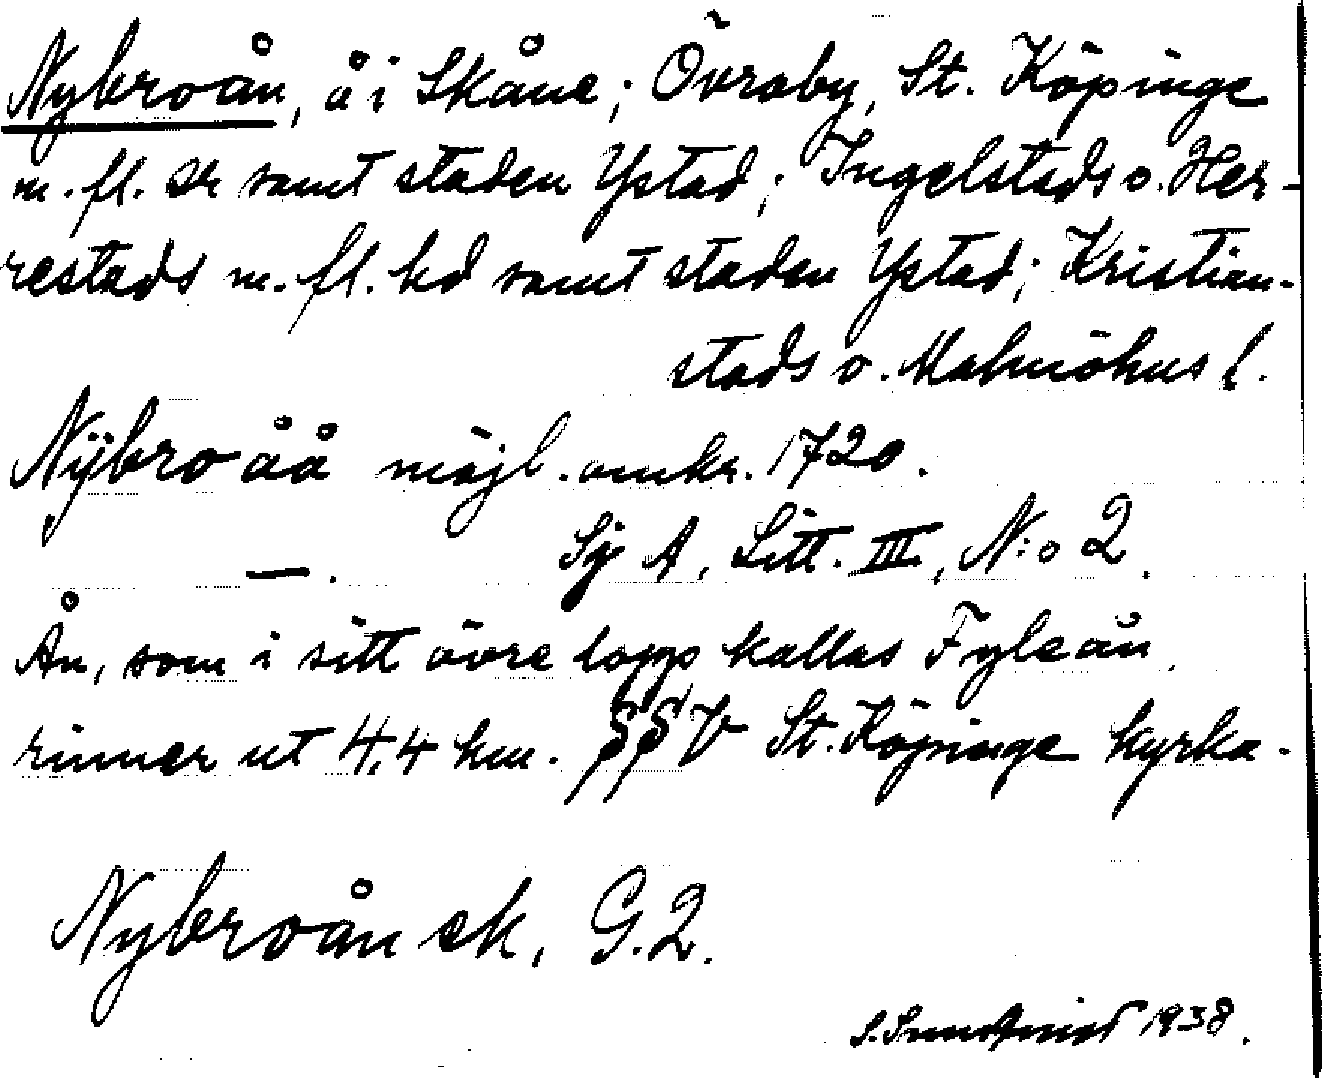 Nybroån, å i Skåne; Övraby, St. Köpinge
m. fl. sr samt staden Ystad; Ingelstads o. Her-
restads m. fl. hd samt staden Ystad; Kristian-
stads o. Malmöhus l.
Nÿbro åå möjl. omkr. 1720.
—. Sj A, Litt. III, N:o 2.
Ån, som i sitt övre lopp kallas Fyleån,
rinner ut 4,4 km. V St. Köpinge kyrka.
Nybroån ek, G.2.
1938.